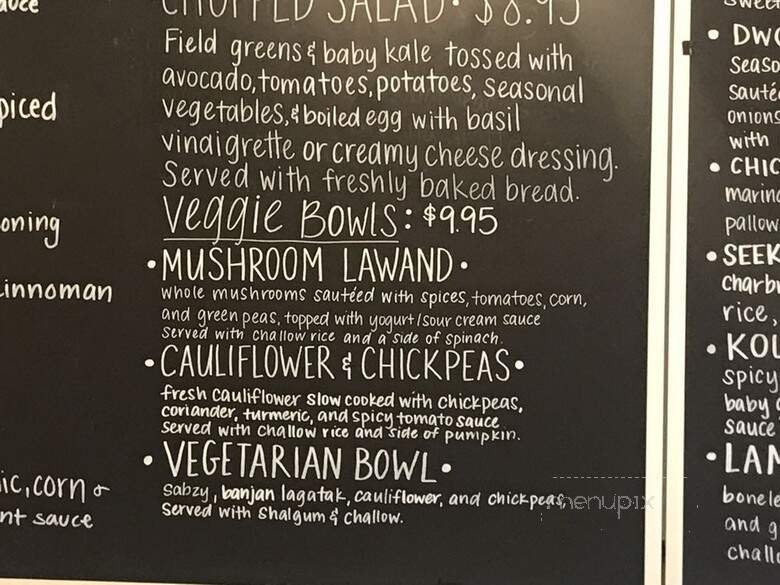 auce
piced
oning
innoman
ic, corn &
nt sauce
CHOPPED SALAD • $8.95
Field greens & baby kale tossed with
avocado, tomatoes, potatoes, seasonal
vegetables, & boiled egg with basil
vinaigrette or creamy cheese dressing.
Served with freshly baked bread.
Veggie BOWLS: $9.95
• MUSHROOM LAWAND •
whole mushrooms sautéed with spices, tomatoes, corn,
and green peas, topped with yogurt/sour cream sauce
Served with challow rice and a side of spinach.
• CAULIFLOWER & CHICKPEAS •
fresh cauliflower slow cooked with chickpeas,
coriander, turmeric, and spicy tomato sauce
Served with challow rice and side of pumpkin.
• VEGETARIAN BOWL •
Sabzy, banjan lagatak, cauliflower, and chickpeas,
Served with Shalgum & challow.
menupix
sweet
• DWO
Seaso
sautée
onions
with
• CHIC
marina
pallow
• SEEK
charbr
rice,
• KOL
spicy
baby
sauce
• LAM
bonele
and g
challo